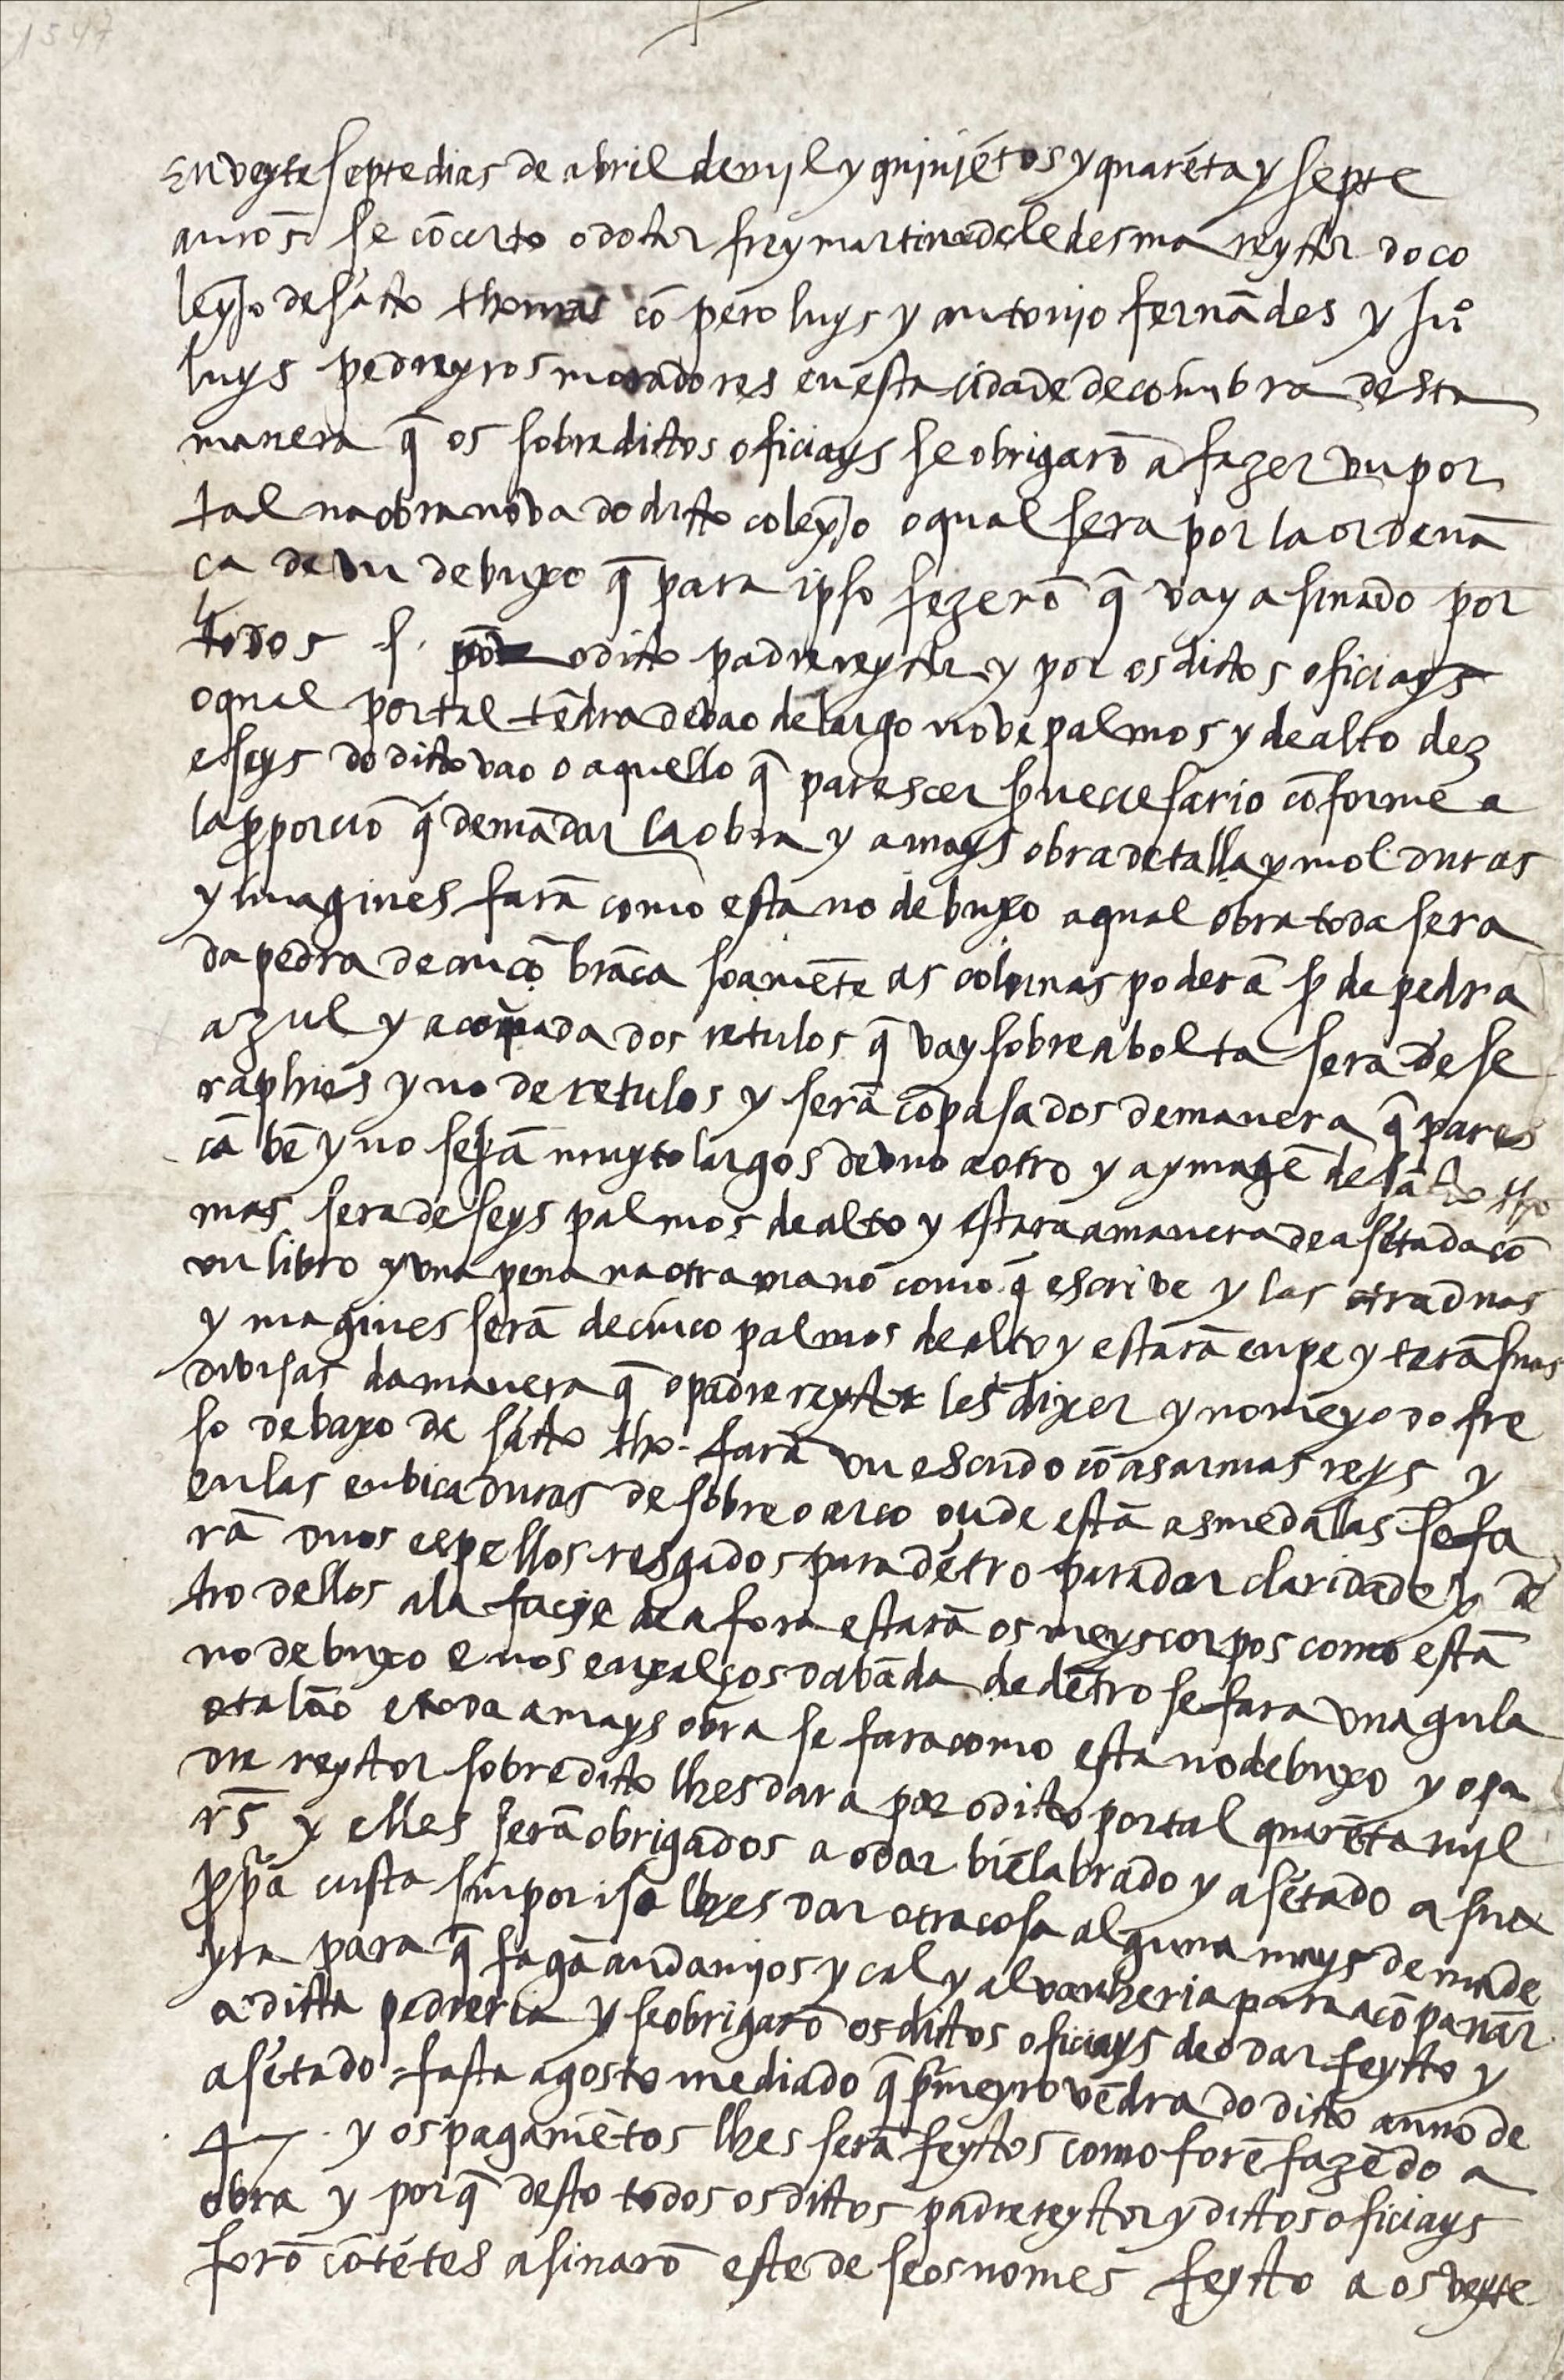 1547
En veyte septe dias de abril de mjl y qujnjẽtos y quarẽta y septe
annos se cõcerto o dotor frey martin de ledesma reytor do co
leyjo de sãcto thomas cõ pero luys y antonjo fernãdes y Juº
luys pedreyros moradores en esta cidade de coimbra desta
manera q̃ os sobradictos oficiays se obrigarõ a fazer vu por
tal na obra nova do dicto coleyjo o qual sera por la ordenã
ça de vu debuxo q̃ para ipso fezerõ q̃ vay asinado por
todos .s. por o dicto padre reytor y por os dictos oficiays
o qual portal tẽdra de vao de largo nove palmos y de alto dez
e seys do dicto vao o aquello q̃ parescer ser neccesario cõforme a
la pporciõ q̃ demãdar la obra y a mays obra de talla y molduras
y imagines farã como esta no debuxo a qual obra toda sera
da pedra de ançã brãca soamẽte as colunas poderã ser de pedra
azul y a comada dos retulos q̃ vay sobre a bolta sera de se
raphiẽs y no de retulos y serã cõpasados de manera q̃ pares
cã bẽ y no sejã muyto largos de vno a otro y a ymagẽ de sãcto tho
mas sera de seys palmos de alto y estara a manera de asẽtada cõ
vn libro y vna pena na otra mano como q̃ escribe y las otras duas
ymagines serã de cinco palmos de alto y estarã en pe y terã suas
divisas da manera q̃ o padre reytor les dixer y no meyo do fre
so debaxo de sãcto tho. farã vn escudo cõ as armas reys y
en las enbicaduras de sobre o arco onde estã as medallas se fa
rã vnos espellos resgados para dẽtro para dar claridade y dẽ
tro dellos a la facije de a fora estarã os meys corpos como estã
no debuxo e nos enxalços da bãda de dẽtro se fara vna gula
o talão e toda a mays obra se fara como esta no debuxo y o pa
dre reytor sobredicto lhes dara por o dicto portal quarẽta mjl
rs̃ y elles serã obrigados a o dar biẽ labrado y asẽtado a sua
ppã custa sin por iso lhes dar otra cosa alguna mays de made
yra para q̃ fagã andamjos y cal y alvanheria para acõpanar
a dicta pedreria y se obrigarõ os dictos oficiays de o dar feyto y
asẽtado fasta agosto mediado q̃ p̃meyro vẽdra do dicto anno de
47. y os pagamẽtos lhes serã feytos como forẽ fazẽdo a
obra y porq̃ desto todos os dictos padre reytor y dictos oficiays
forõ cõtẽtes asinarõ este de seos nomes feyto a os veyte